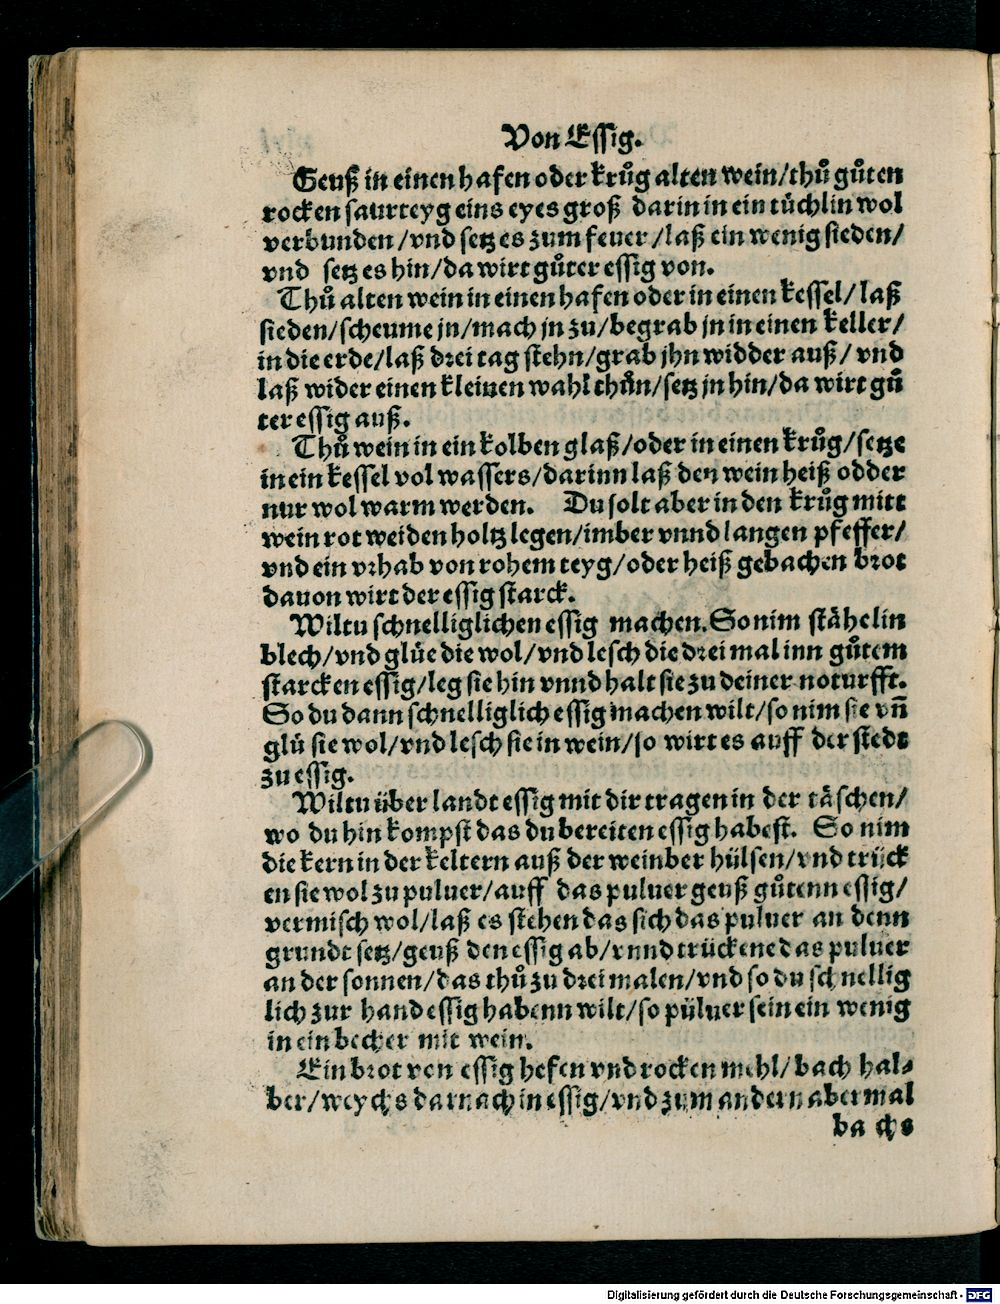 Von Essig.
Geuß in einen hafen oder krůg alten wein/thů gůten
rocken saurteyg eins eyes groß darin in ein tüchlin wol
verbunden/vnd setz es zum feuer/laß ein wenig sieden/
vnd setz es hin/da wirt gůter essig von.
Thů alten wein in einen hafen oder in einen kessel/laß
sieden/scheume jn/mach jn zu/begrab jn in einen keller/
in die erde/laß drei tag stehn/grab jhn widder auß/vnd
laß wider einen kleinen wahl thůn/setz jn hin/da wirt gů
ter essig auß.
Thů wein in ein kolben glaß/oder in einen krůg/setze
in ein kessel vol wassers/darinn laß den wein heiß odder
nur wol warm werden. Du solt aber in den krůg mitt
wein rot weiden holtz legen/imber vnnd langen pfeffer/
vnd ein vrhab von rohem teyg/oder heiß gebachen brot
dauon wirt der essig starck.
Wiltu schnelliglichen essig machen. So nim stähelin
blech/vnd glüe die wol/vnd lesch die drei mal inn gůtem
starcken essig/leg sie hin vnnd halt sie zu deiner noturfft.
So du dann schnelliglich essig machen wilt/so nim sie vn̄
glü sie wol/vnd lesch sie in wein/so wirt es auff der stedt
zu essig.
Wiltu über landt essig mit dir tragen in der täschen/
wo du hin kompst das du bereiten essig habest. So nim
die kern in der keltern auß der weinber hülsen/vnd trück
en sie wol zu puluer/auff das puluer geuß gůtenn essig/
vermisch wol/laß es stehen das sich das puluer an denn
grundt setz/geuß den essig ab/vnnd trückene das puluer
an der sonnen/das thů zu drei malen/vnd so du schnellig
lich zur hand essig habenn wilt/so pülner sein ein wenig
in ein becher mit wein.
Ein brot von essig hefen vnd rocken mehl/bach hal⸗
ber/weychs darnach in essig/vnd zum andern abermal
bachs
Digitalisierung gefördert durch die Deutsche Forschungsgemeinschaft - DFG